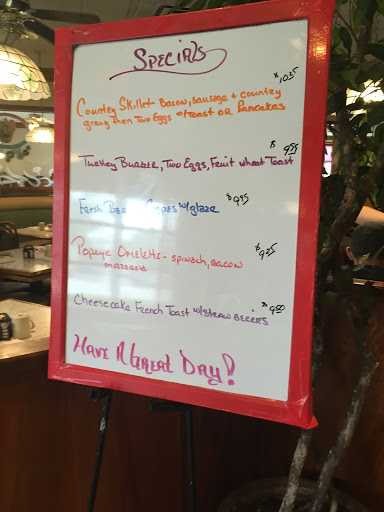 Specials
Country Skillet - Bacon, Sausage + country $10.25
gravy then Two Eggs w/Toast OR Pancakes
Turkey Burger, Two Eggs, Fruit wheat Toast $9.95
Fresh Crepes w/glaze $9.95
Popeye Omelette - spinach, bacon $9.25
Cheesecake French Toast w/strawberries $9.50
Have A Great Day!